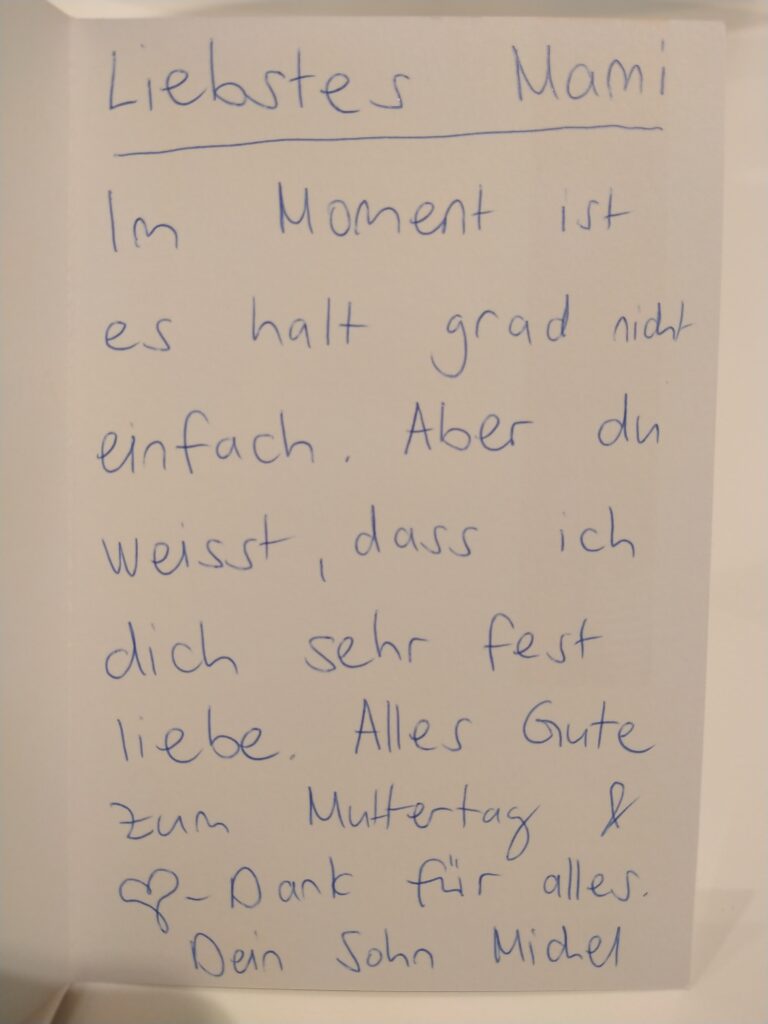 Liebstes Mami
Im Moment ist
es halt grad nicht
einfach. Aber du
weisst, dass ich
dich sehr fest
liebe. Alles Gute
zum Muttertag &
♡-Dank für alles.
Dein Sohn Michel